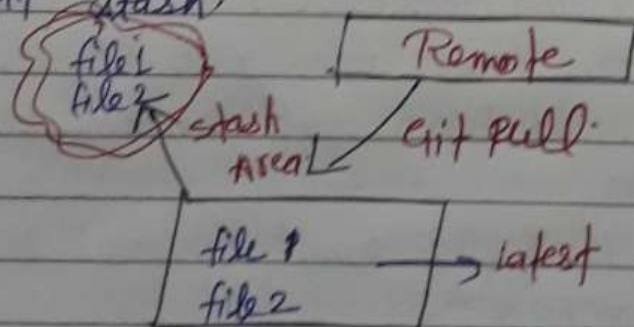 stash
file1
file2
Remote
stash
Area
Git pull.
file 1
latest
file 2